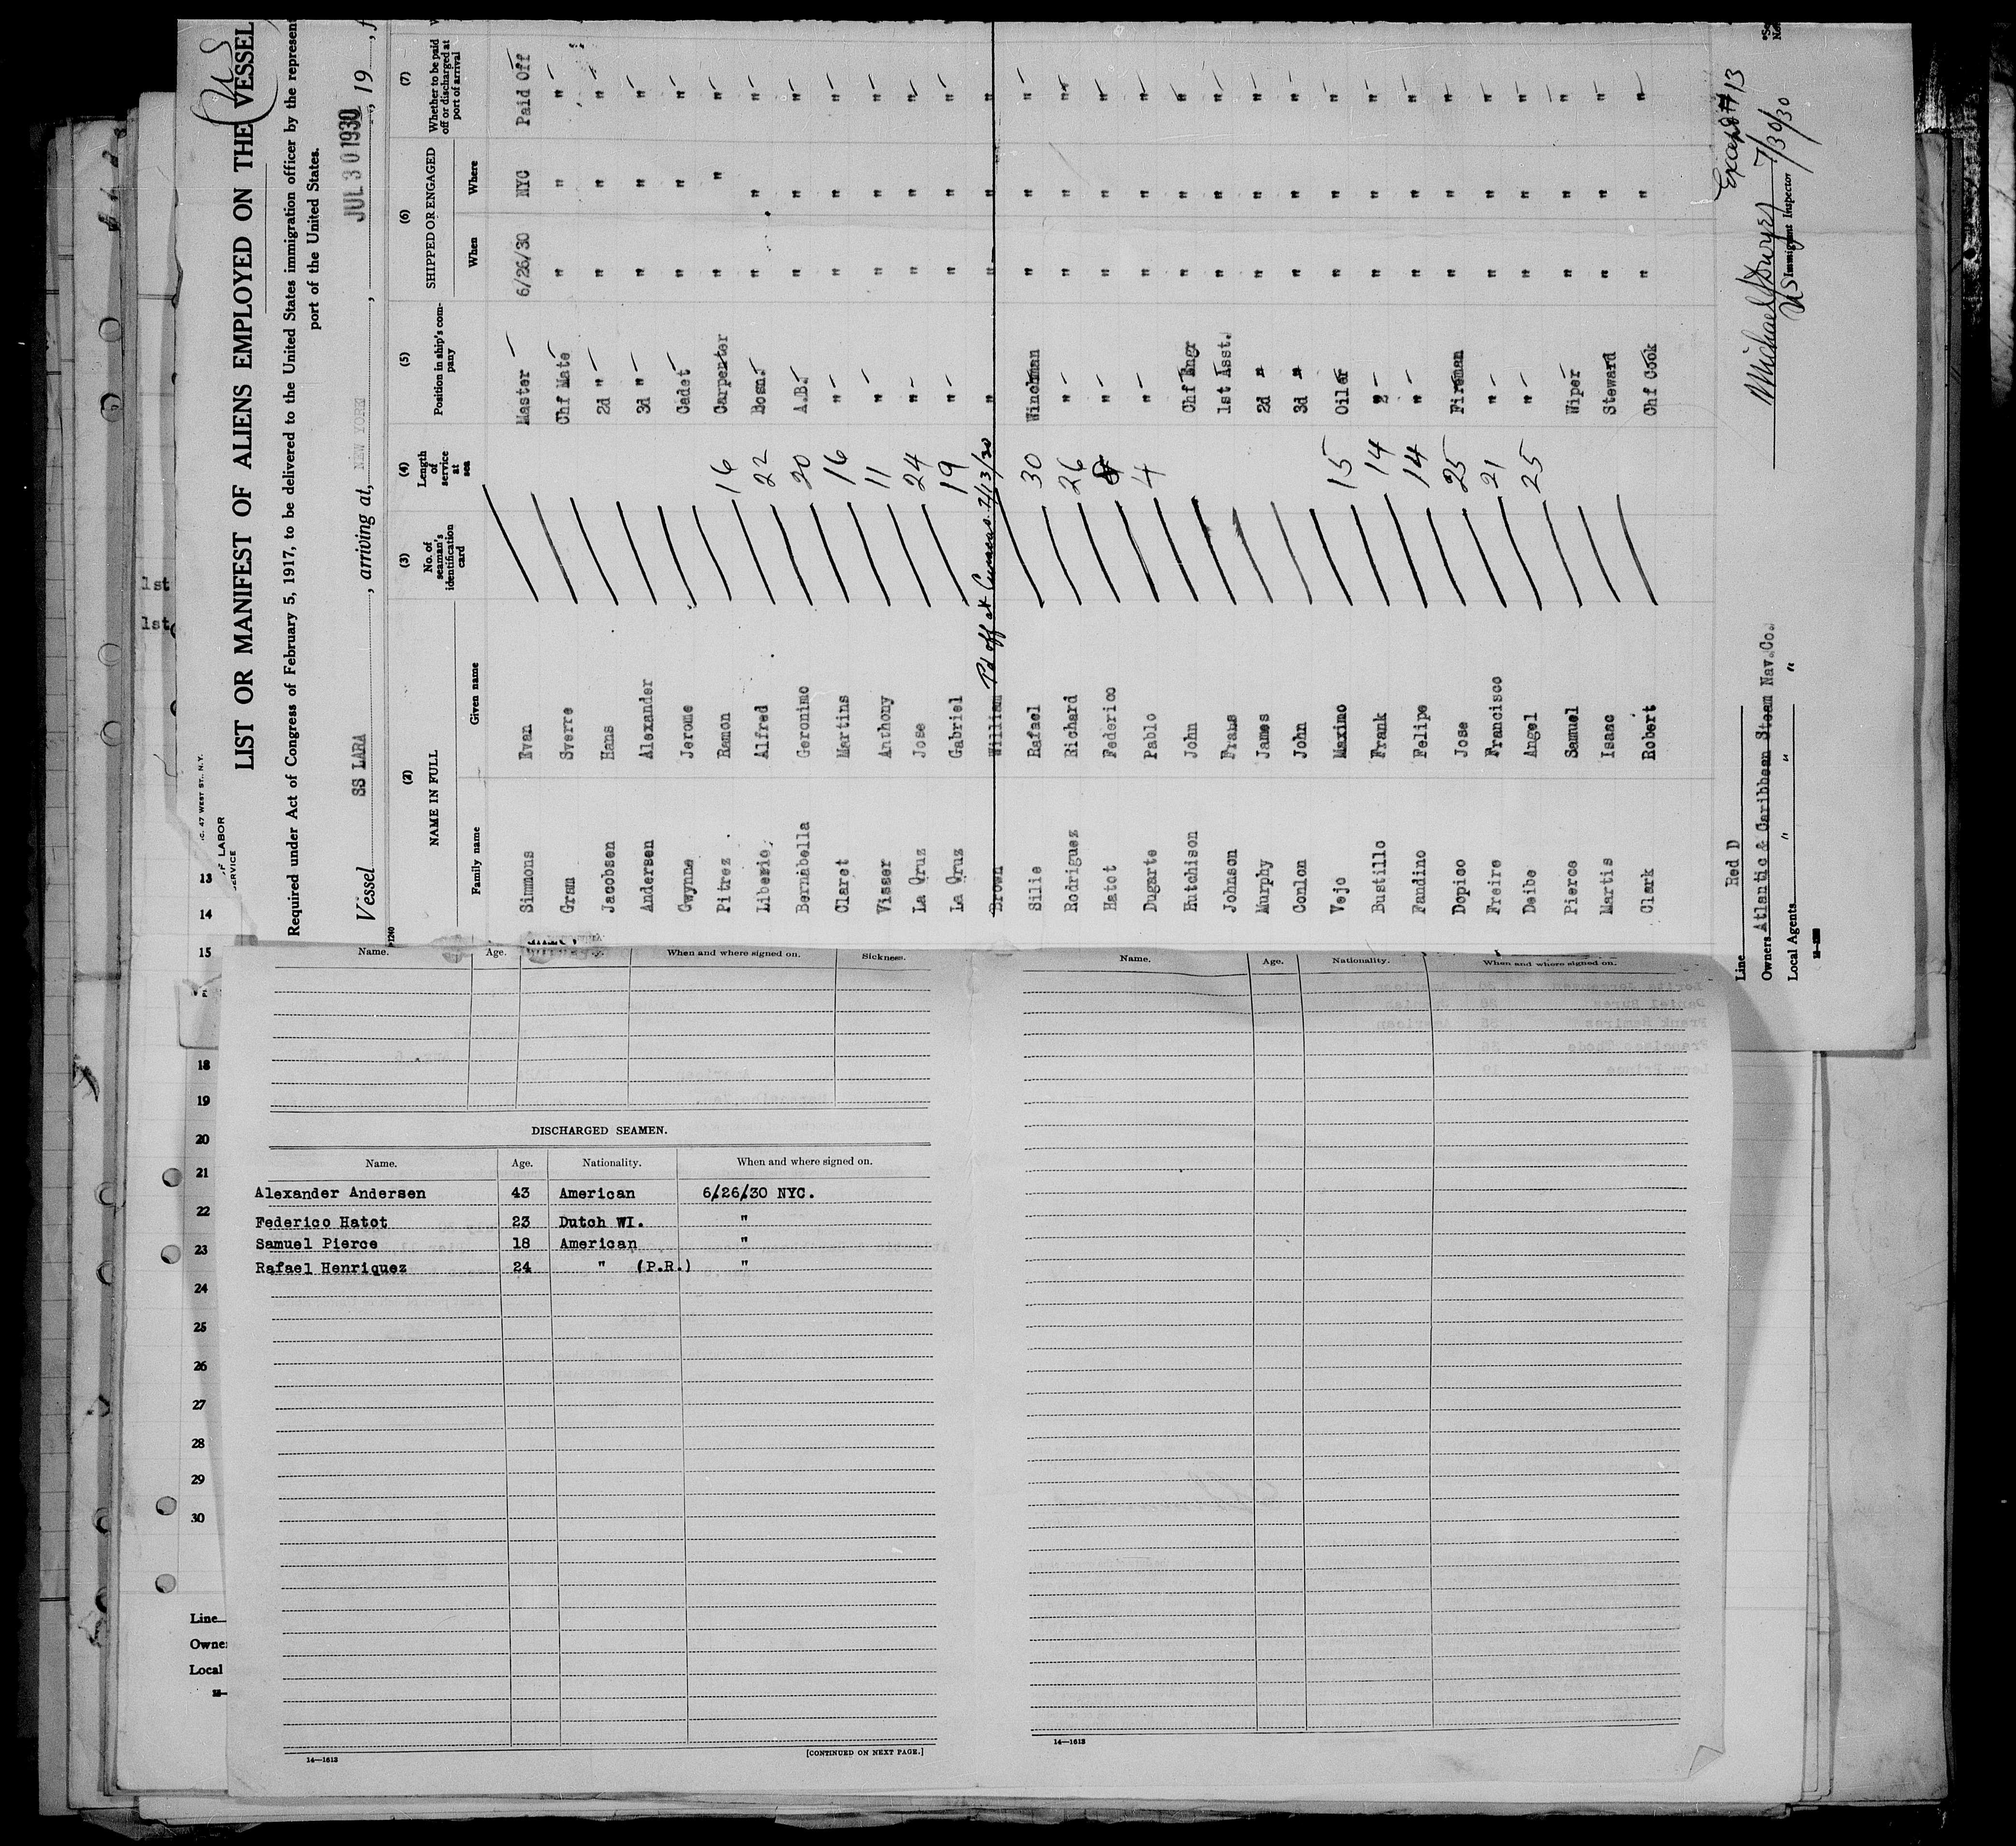 LIST OR MANIFEST OF ALIENS EMPLOYED ON THE VESSEL
Required under Act of Congress of February 5, 1917, to be delivered to the United States immigration officer by the represen
port of the United States.
Vessel SS LARA, arriving at, NEW YORK, JUL 30 1930, 19
(2) NAME IN FULL (3) No. of seaman's identification card (4) Length of service at sea (5) Position in ship's company (6) SHIPPED OR ENGAGED (7) Whether to be paid off or discharged at port of arrival
Family name Given name When Where
Simmons Evan Master 6/26/30 NYC Paid Off
Gran Sverre Chf Mate " " "
Jacobsen Hans 2d " " " "
Andersen Alexander 3d " " " "
Gwynne Jerome Cadet " " "
Pitrez Ramon 16 Carpenter " " "
Liberie Alfred 22 Bosn. " " "
Bernabella Geronimo 20 A.B. " " "
Claret Martins 16 " " " "
Visser Anthony 11 " " " "
La Qruz Jose 24 " " " "
La Qruz Gabriel 19 " " " "
Brown William Pd off at Curacao 7/13/30 " " " "
Silie Rafael 30 Winchman " " "
Rodriguez Richard 26 " " " "
Hatot Federico " " " "
Dugarte Pablo 4 " " " "
Hutchison John Chf Engr " " "
Johnson Frans 1st Asst. " " "
Murphy James 2d " " " "
Conlon John 3d " " " "
Vejo Maximo 15 Oiler " " "
Bustillo Frank 14 " " " "
Fandino Felipe 14 " " " "
Dopico Jose 25 Fireman " " "
Freire Francisco 21 " " " "
Deibe Angel 25 " " " "
Pierce Samuel Wiper " " "
Martis Isaac Steward " " "
Clark Robert Chf Cook " " "
Except #13
Line Red D
Owners Atlantic & Caribbean Steam Nav. Co.
Local Agents " " "
Michael J Dwyer 7/30/30
US Immigrant Inspector
C. 47 WEST ST., N.Y.
OF LABOR
SERVICE
1st
1st
13
14
15
18
19
20
21
22
23
24
25
26
27
28
29
30
Line
Owner
Local
Name. Age. When and where signed on. Sickness.
DISCHARGED SEAMEN.
Name. Age. Nationality. When and where signed on.
Alexander Andersen 43 American 6/26/30 NYC.
Federico Hatot 23 Dutch WI. "
Samuel Pierce 18 American "
Rafael Henriquez 24 " (P.R.) "
14—1613 [CONTINUED ON NEXT PAGE.]
Name. Age. Nationality. When and where signed on.
14—1613